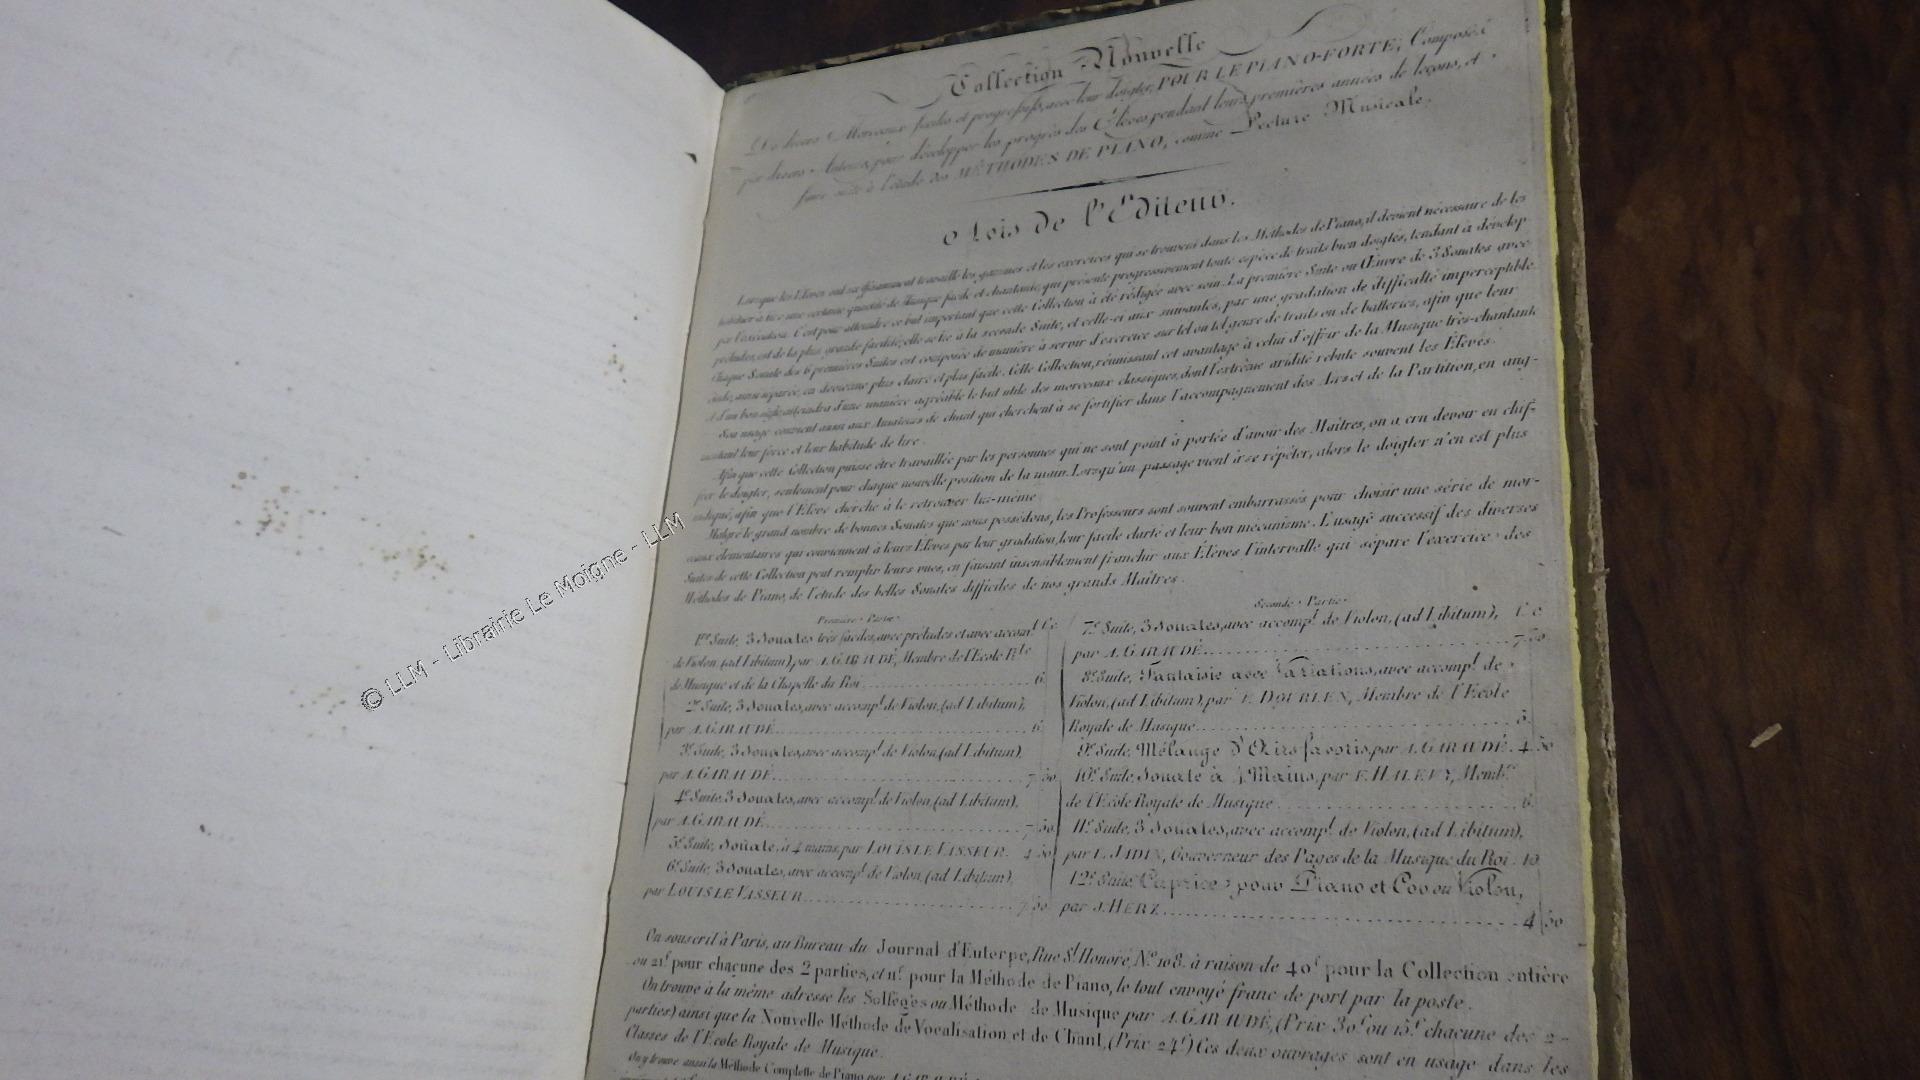 Collection Nouvelle
De divers Morceaux faciles et progressifs, avec leur doigter, POUR LE PIANO-FORTE, Composés
par divers Auteurs, pour développer les progrès des Élèves pendant leurs premières années de leçons, et
faire suite à l'étude des MÉTHODES DE PIANO, comme Lecture Musicale.
Avis de l'Editeur.
Lorsque les Elèves ont suffisamment travaillé les gammes et les exercices qui se trouvent dans les Méthodes de Piano, il devient nécessaire de les
habituer à lire une certaine quantité de Musique facile et chantante, qui présente progressivement toute espèce de traits bien doigtés, tendant à dévelop-
per l'exécution. C'est pour atteindre ce but important que cette Collection à été rédigée avec soin. La première Suite ou Œuvre de 3 Sonates avec
préludes, est de la plus grande facilité; elle se lie à la seconde Suite, et celle-ci aux suivantes, par une gradation de difficulté imperceptible.
Chaque Sonate des 6 premières Suites est composée de manière à servir d'exercice sur tel ou tel genre de traits ou de batteries, afin que leur
étude, ainsi séparée, en devienne plus claire et plus facile. Cette Collection, réunissant cet avantage à celui d'offrir de la Musique très-chantante
et d'un bon style, atteindra d'une manière agréable le but utile des morceaux classiques, dont l'extrême aridité rebute souvent les Elevés.
Son usage convient aussi aux Amateurs de chant qui cherchent à se fortifier dans l'accompagnement des Airs et de la Partition, en aug-
mentant leur force et leur habitude de lire.
Afin que cette Collection puisse être travaillée par les personnes qui ne sont point à portée d'avoir des Maîtres, on a cru devoir en chif-
frer le doigter, seulement pour chaque nouvelle position de la main. Lorsqu'un passage vient à se répéter, alors le doigter n'en est plus
indiqué, afin que l'Elève cherche à le retrouver lui-même.
Malgré le grand nombre de bonnes Sonates que nous possédons, les Professeurs sont souvent embarrassés pour choisir une série de mor-
ceaux élémentaires qui conviennent à leurs Elèves par leur gradation, leur facile clarté et leur bon mécanisme. L'usage successif des diverses
Suites de cette Collection peut remplir leurs vues, en faisant insensiblement franchir aux Élèves l'intervalle qui sépare l'exercice des
Méthodes de Piano, de l'étude des belles Sonates difficiles de nos grands Maîtres.
Première Partie.
1re Suite, 3 Sonates très faciles, avec préludes et avec accompt
de Violon, (ad Libitum), par A. GARAUDÉ, Membre de l'Ecole Rle
de Musique et de la Chapelle du Roi ........ 6.
2e Suite, 3 Sonates, avec accompt de Violon, (ad Libitum),
par A. GARAUDÉ ........ 6.
3e Suite, 3 Sonates, avec accompt de Violon, (ad Libitum),
par A. GARAUDÉ ........ 7 50
4e Suite, 3 Sonates, avec accompt de Violon, (ad Libitum),
par A. GARAUDÉ ........ 7 50
5e Suite, Sonate, à 4 mains, par LOUIS LE VASSEUR. 4 50
6e Suite, 3 Sonates, avec accompt de Violon, (ad Libitum),
par LOUIS LE VASSEUR ........ 7 50
Seconde Partie.
7e Suite, 3 Sonates, avec accompt de Violon, (ad Libitum),
par A. GARAUDÉ ........ 7 50
8e Suite, Fantaisie avec Variations, avec accompt de
Violon, (ad Libitum), par V. DOURLEN, Membre de l'Ecole
Royale de Musique ........ 5.
9e Suite, Mélange d'Airs favoris, par A. GARAUDÉ. 4 50
10e Suite, Sonate à 4 Mains, par F. HALEVY, Membre
de l'Ecole Royale de Musique ........ 6.
11e Suite, 3 Sonates, avec accompt de Violon, (ad Libitum),
par L. JADIN, Gouverneur des Pages de la Musique du Roi. 10
12e Suite, Caprice pour Piano et Cor ou Violon,
par J. HERZ ........ 4 50
On souscrit à Paris, au Bureau du Journal d'Euterpe, Rue St Honoré, No 108. à raison de 40f pour la Collection entière
ou 21f pour chacune des 2 parties, et 11f pour la Méthode de Piano, le tout envoyé franc de port par la poste.
On trouve à la même adresse les Solfèges ou Méthode de Musique par A. GARAUDÉ, (Prix 30f ou 15f chacune des 2
parties) ainsi que la Nouvelle Méthode de Vocalisation et de Chant, (Prix 24f) Ces deux ouvrages sont en usage dans les
Classes de l'Ecole Royale de Musique.
On y trouve aussi la Méthode Complette de Piano par A. GARAUDÉ
© LLM - Librairie Le Moigne - LLM